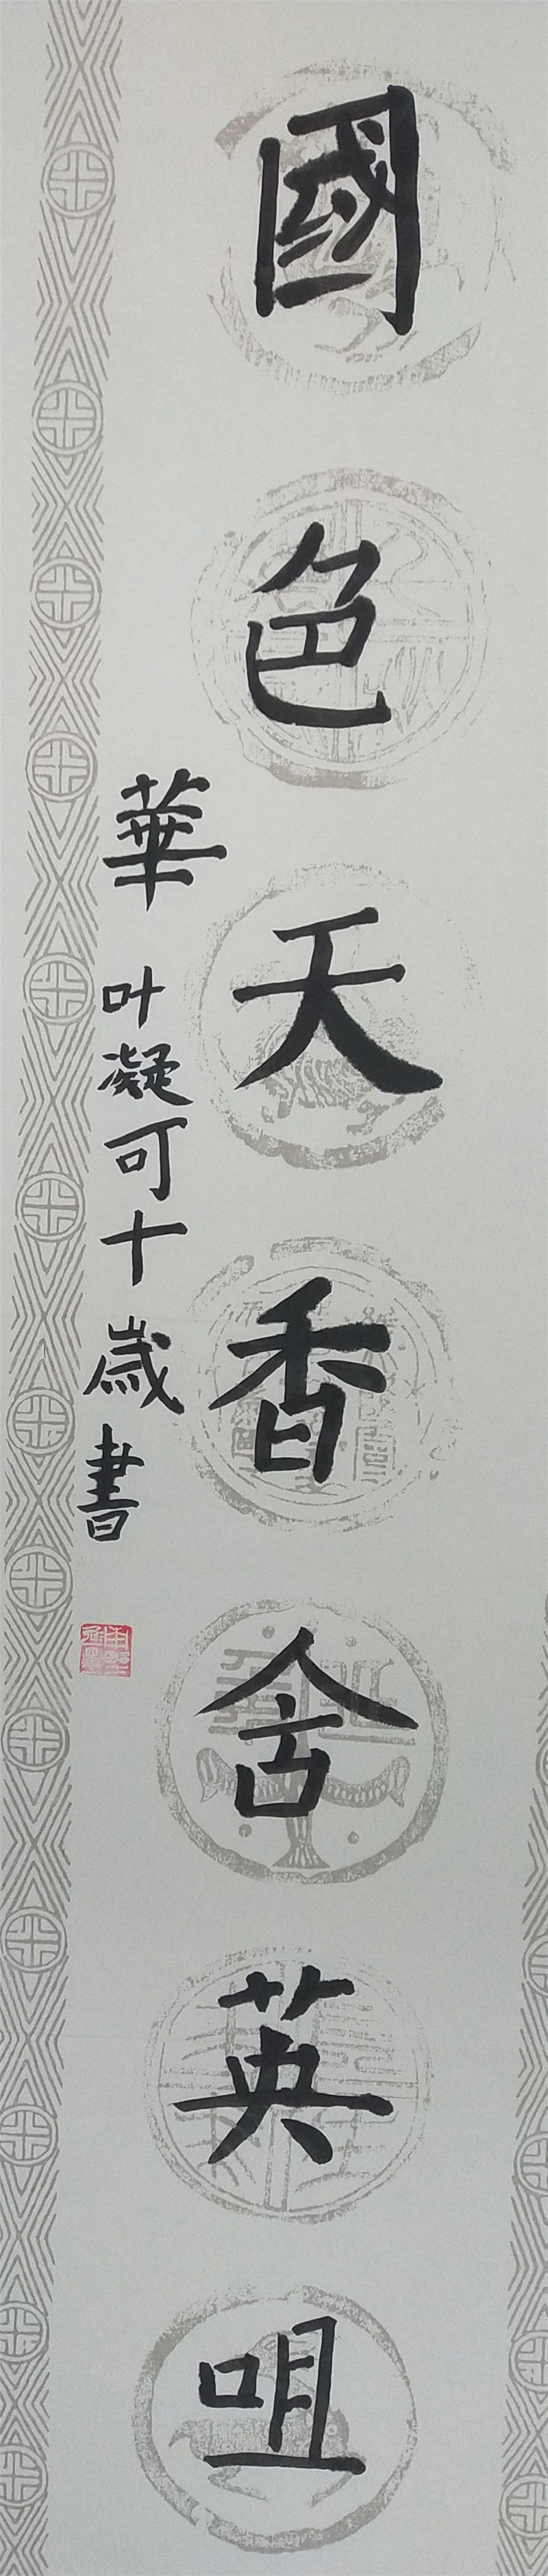 國色天香含英咀
華 叶凝可十歲書